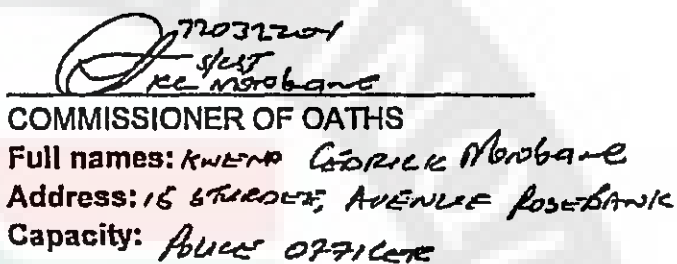 72032201
S/Sgt
KC Morobane
COMMISSIONER OF OATHS
Full names: KWENA CEDRICK Morobane
Address: 15 STURDEE, AVENUE ROSEBANK
Capacity: POLICE OFFICER